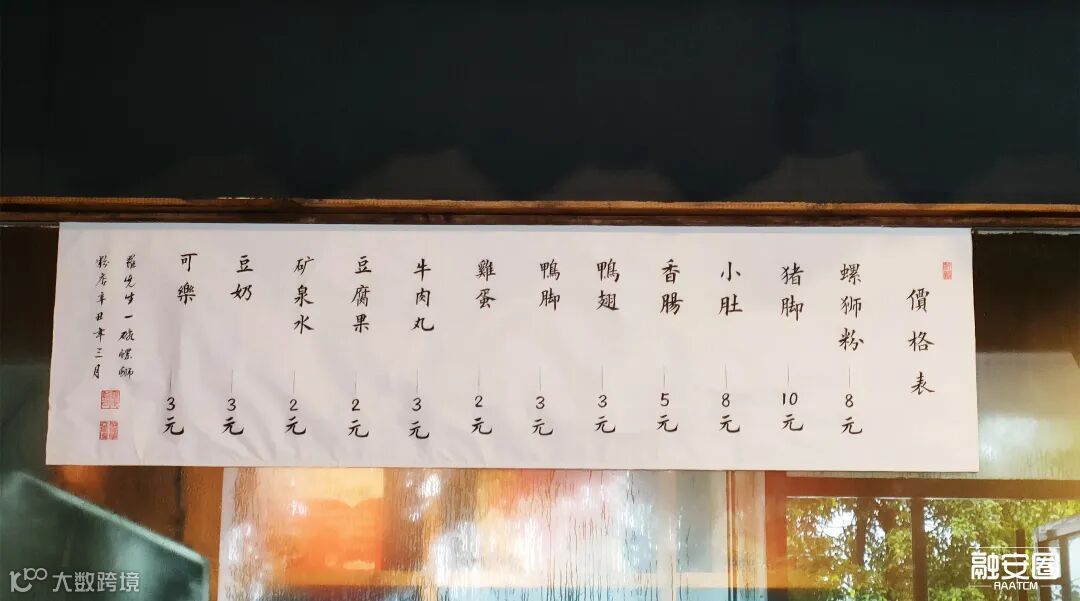 價格表
螺狮粉 8元
猪脚 10元
小肚 8元
香腸 5元
鴨翅 3元
鴨脚 3元
雞蛋 2元
牛肉丸 3元
豆腐果 2元
矿泉水 2元
豆奶 3元
可樂 3元
羅先生一碗螺狮
粉店辛丑年三月
大数跨境
融安圈
RAATCM